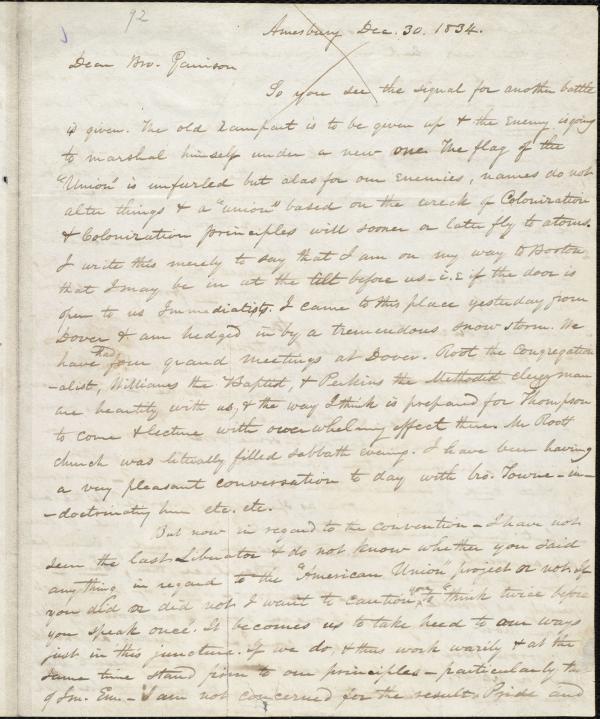 92
Amesbury Dec. 30. 1834.
Dear Bro. Garrison
So you see the signal for another battle
is given. The old rampart is to be given up & the Enemy is going
to marshal himself under a new one. The flag of the
"Union" is unfurled but alas for our Enemies, names do not
alter things & a "union" based on the wreck of Colonization
& Colonization principles will sooner or later fly to atoms.
I write this merely to say that I am on my way to Boston
that I may be in at the tilt before us - i.e if the door is
open to us Immediatists. I came to this place yesterday from
Dover & am hedged in by a tremendous snow storm. We
have had four grand meetings at Dover. Root the Congregation
-alist, Williams the Baptist, & Perkins the Methodist clergyman
are heartily with us, & the way I think is prepared for Thompson
to come & lecture with overwhelming effect there. Mr Root
church was literally filled sabbath evening. I have been having
a very pleasant conversation to day with bro. Towne - in-
-doctrinating him etc. etc.
But now in regard to the convention - I have not
seen the last Liberator & do not know whether you said
any thing in regard to the "American Union" project or not. If
you did or did not I want to caution you to think twice before
you speak once. It becomes us to take heed to our ways
just in this juncture. If we do, & thus work warily & at the
same time stand firm to our principles - particularly the
of Im. Em. - I am not concerned for the result. Pride and